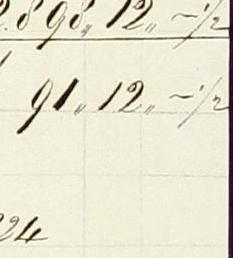 2.898„ 12„ –½
91„ 12„ –½
224